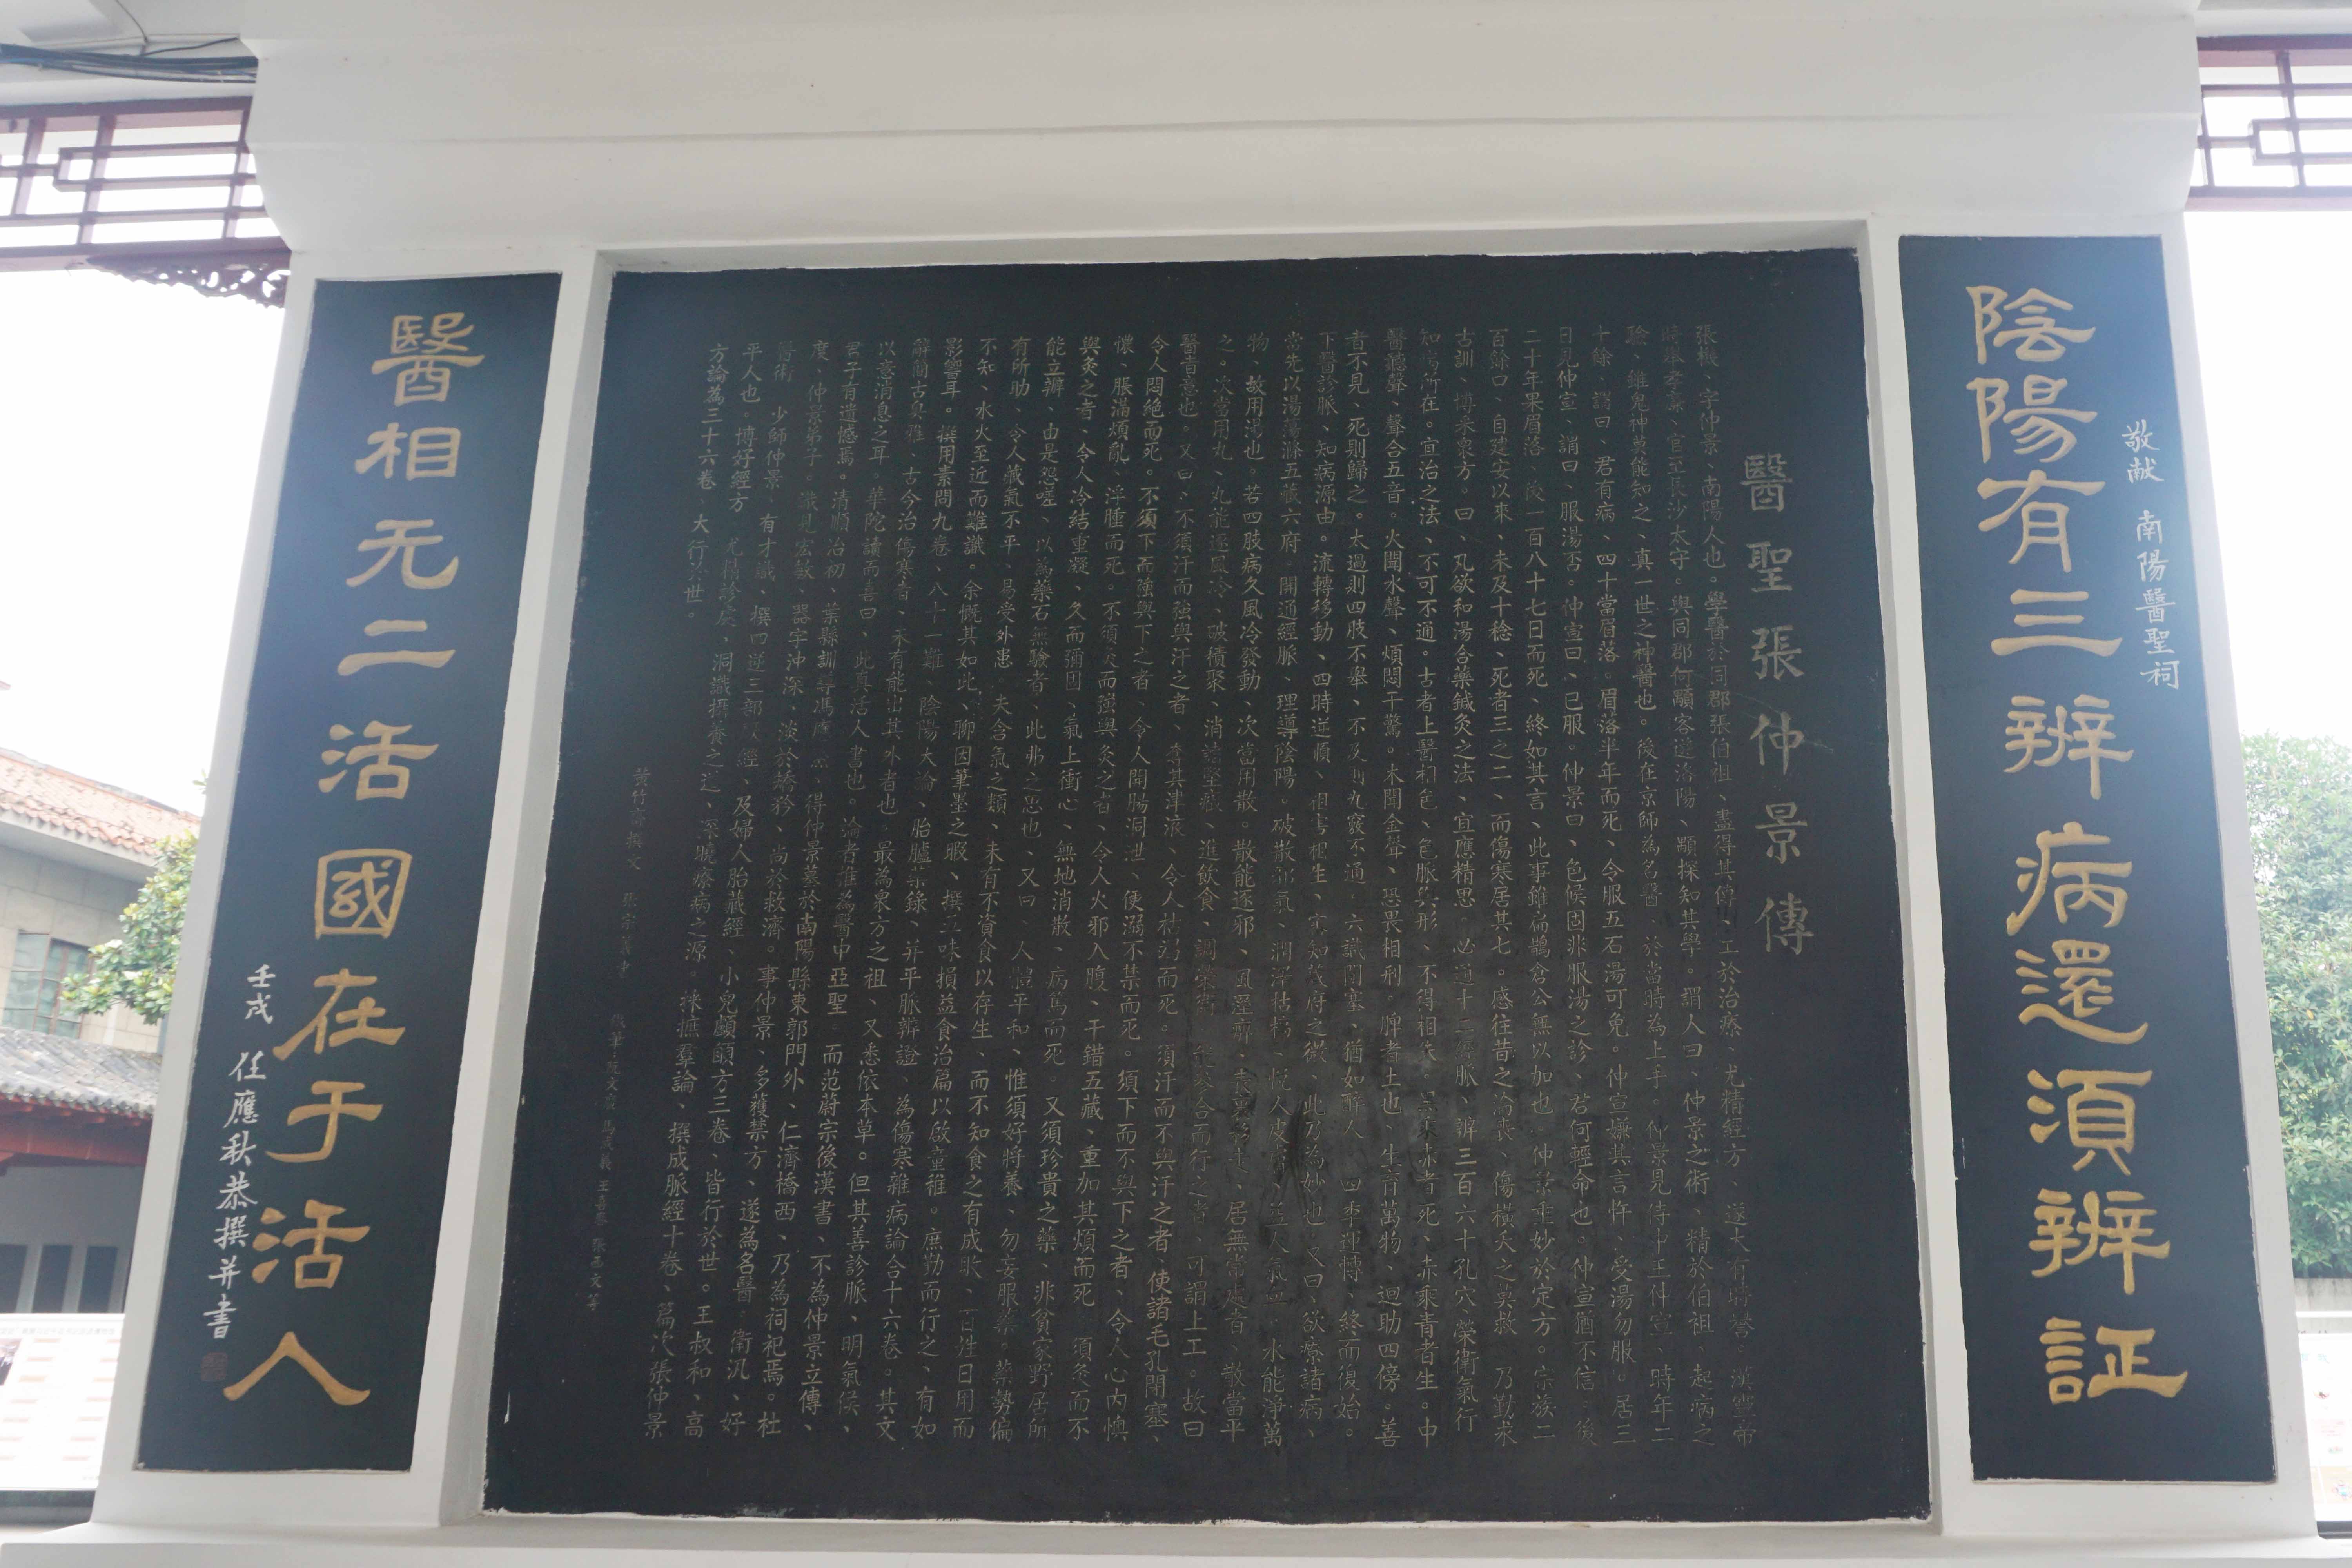 敬献 南陽醫聖祠
陰陽有三辨病還須辨証
醫聖張仲景傳
張機、字仲景、南陽人也。學醫於同郡張伯祖、盡得其傳、工於治療、尤精經方、遂大有時譽。漢靈帝
時舉孝廉、官至長沙太守。與同郡何顒客遊洛陽、顒探知其學。謂人曰、仲景之術、精於伯祖、起病之
驗、雖鬼神莫能知之、真一世之神醫也。後在京師為名醫、於當時為上手。仲景見侍中王仲宣、時年二
十餘、謂曰、君有病、四十當眉落。眉落半年而死、令服五石湯可免。仲宣嫌其言忤、受湯勿服。居三
日見仲宣、謂曰、服湯否。仲宣曰、已服。仲景曰、色候固非服湯之診、君何輕命也。仲宣猶不信。後
二十年果眉落、後一百八十七日而死、終如其言、此事雖扁鵲倉公無以加也。仲景垂妙於定方。宗族二
百餘口、自建安以來、未及十稔、死者三之二、而傷寒居其七。感往昔之淪喪、傷橫夭之莫救、乃勤求
古訓、博采衆方。曰、凡欲和湯合藥鍼灸之法、宜應精思。必通十二經脈、辨三百六十孔穴、榮衛氣行
知病所在。宜治之法、不可不通。古者上醫相色、色脈與形、不得相失。黑乘赤者死、赤乘青者生。中
醫聽聲、聲合五音。火聞水聲、煩悶干驚。木聞金聲、恐畏相刑。脾者土也、生育萬物、迴助四傍。善
者不見、死則歸之。太過則四肢不舉、不及則九竅不通。六識閉塞、猶如醉人。四季運轉、終而復始。
下醫診脈、知病源由。流轉移動、四時逆順、相害相生、審知藏府之微、此乃為妙也。又曰、欲療諸病、
當先以湯蕩滌五藏六府。開通經脈、理導陰陽。破散邪氣、潤澤枯槁、悅人皮膚、益人氣血。水能淨萬
物、故用湯也。若四肢病久風冷發動、次當用散。散能逐邪、風濕痹、表裏移走、居無常處者、散當平
之。次當用丸、丸能逐風冷、破積聚、消諸堅癥、進飲食、調榮衛。能參合而行之者、可謂上工。故曰
醫者意也。又曰、不須汗而強與汗之者、奪其津液、令人枯竭而死。須汗而不與汗之者、使諸毛孔閉塞、
令人悶絕而死。不須下而強與下之者、令人開腸洞泄、便溺不禁而死。須下而不與下之者、令人心內懊
憹、脹滿煩亂、浮腫而死。不須灸而強與灸之者、令人火邪入腹、干錯五藏、重加其煩而死。須灸而不
與灸之者、令人冷結重凝、久而彌固、氣上衝心、無地消散、病篤而死。又須珍貴之藥、非貧家野居所
能立辨、由是怨嗟、以為藥石無驗者、此弗之思也、又曰、人體平和、惟須好將養、勿妄服藥。藥勢偏
有所助、令人藏氣不平、易受外患。夫含氣之類、未有不資食以存生、而不知食之有成敗、百姓日用而
不知、水火至近而難識。余慨其如此、聊因筆墨之暇、撰五味損益食治篇以啟童稚。庶勤而行之、有如
影響耳。撰用素問九卷、八十一難、陰陽大論、胎臚藥錄、并平脈辨證、為傷寒雜病論合十六卷。其文
辭簡古奥雅、古今治傷寒者、未有能出其外者也。最為衆方之祖、又悉依本草。但其善診脈、明氣侯、
以意消息之耳。華陀讀而善曰、此真活人書也。論者推為醫中亞聖。而范蔚宗後漢書、不為仲景立傳、
君子有遺憾焉。清順治初、葉縣訓導馮應鰲、得仲景墓於南陽縣東郭門外、仁濟橋西、乃為祠祀焉。杜
度、仲景弟子。識見宏敏、器宇沖深、淡於驕矜、尚於救濟。事仲景、多獲禁方、遂為名醫。衛汛、好
醫術、少師仲景、有才識、撰四逆三部厥經、及婦人胎藏經、小兒顱顖方三卷、皆行於世。王叔和、高
平人也。博好經方、尤精診處、洞識攝養之道、深曉療病之源。採摭羣論、撰成脈經十卷、篇次張仲景
方論為三十六卷 大行於世。
黃竹齋 撰文 張宗 書
醫相无二活國在于活人
壬戌 任應秋恭撰并書